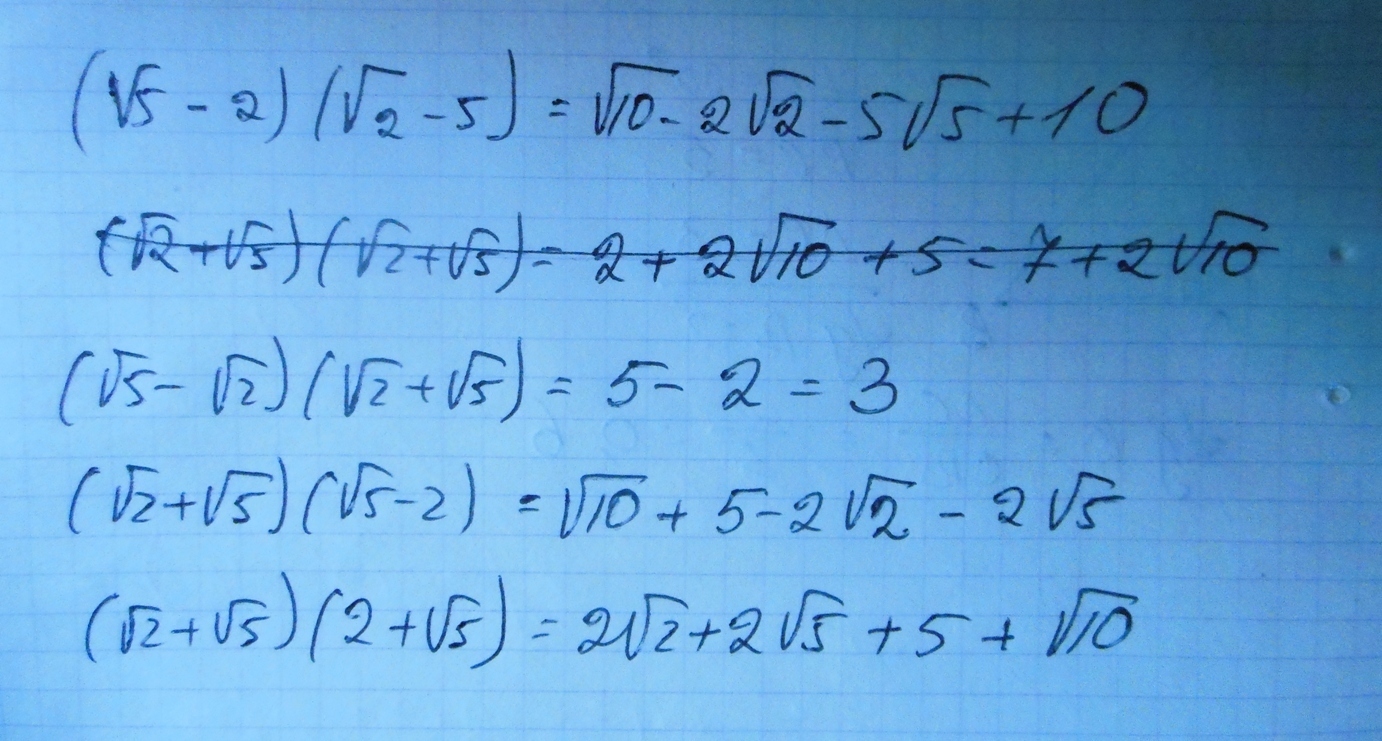 (√5 - 2)(√2 - 5) = √10 - 2√2 - 5√5 + 10
(√2 + √5)(√2 + √5) = 2 + 2√10 + 5 = 7 + 2√10
(√5 - √2)(√2 + √5) = 5 - 2 = 3
(√2 + √5)(√5 - 2) = √10 + 5 - 2√2 - 2√5
(√2 + √5)(2 + √5) = 2√2 + 2√5 + 5 + √10